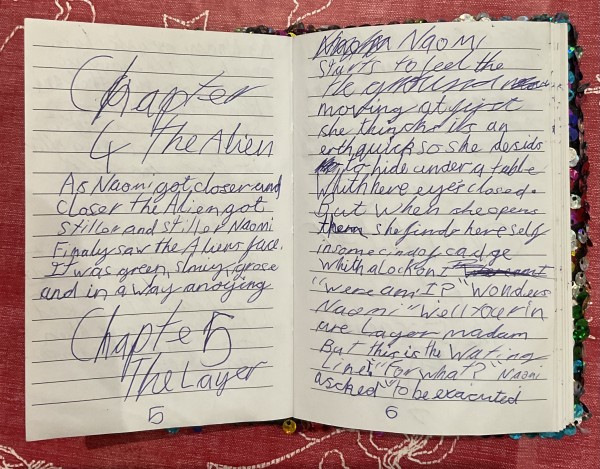 Chapter
4 The Alien
As Naomi got closer and
closer the Alien got
stiller and stiller Naomi
Finaly saw the Aliens face.
It was green, slmiy, grose
and in a way anoying
Chapter 5
The Layer
5
Naomi
starts to feel the
moving at first
she thinks its an
erthquick so she desids
to hide under a table
Whith here eyes closed.
But When she opens
them she finds hereself
in some cind of cadge
Whith a lock on it
"Were am I?" Wonders
Naomi "Well your in
are Layer madam
But this is the Wating
Line" "for what?" Naomi
ascked "to be exacuted
6